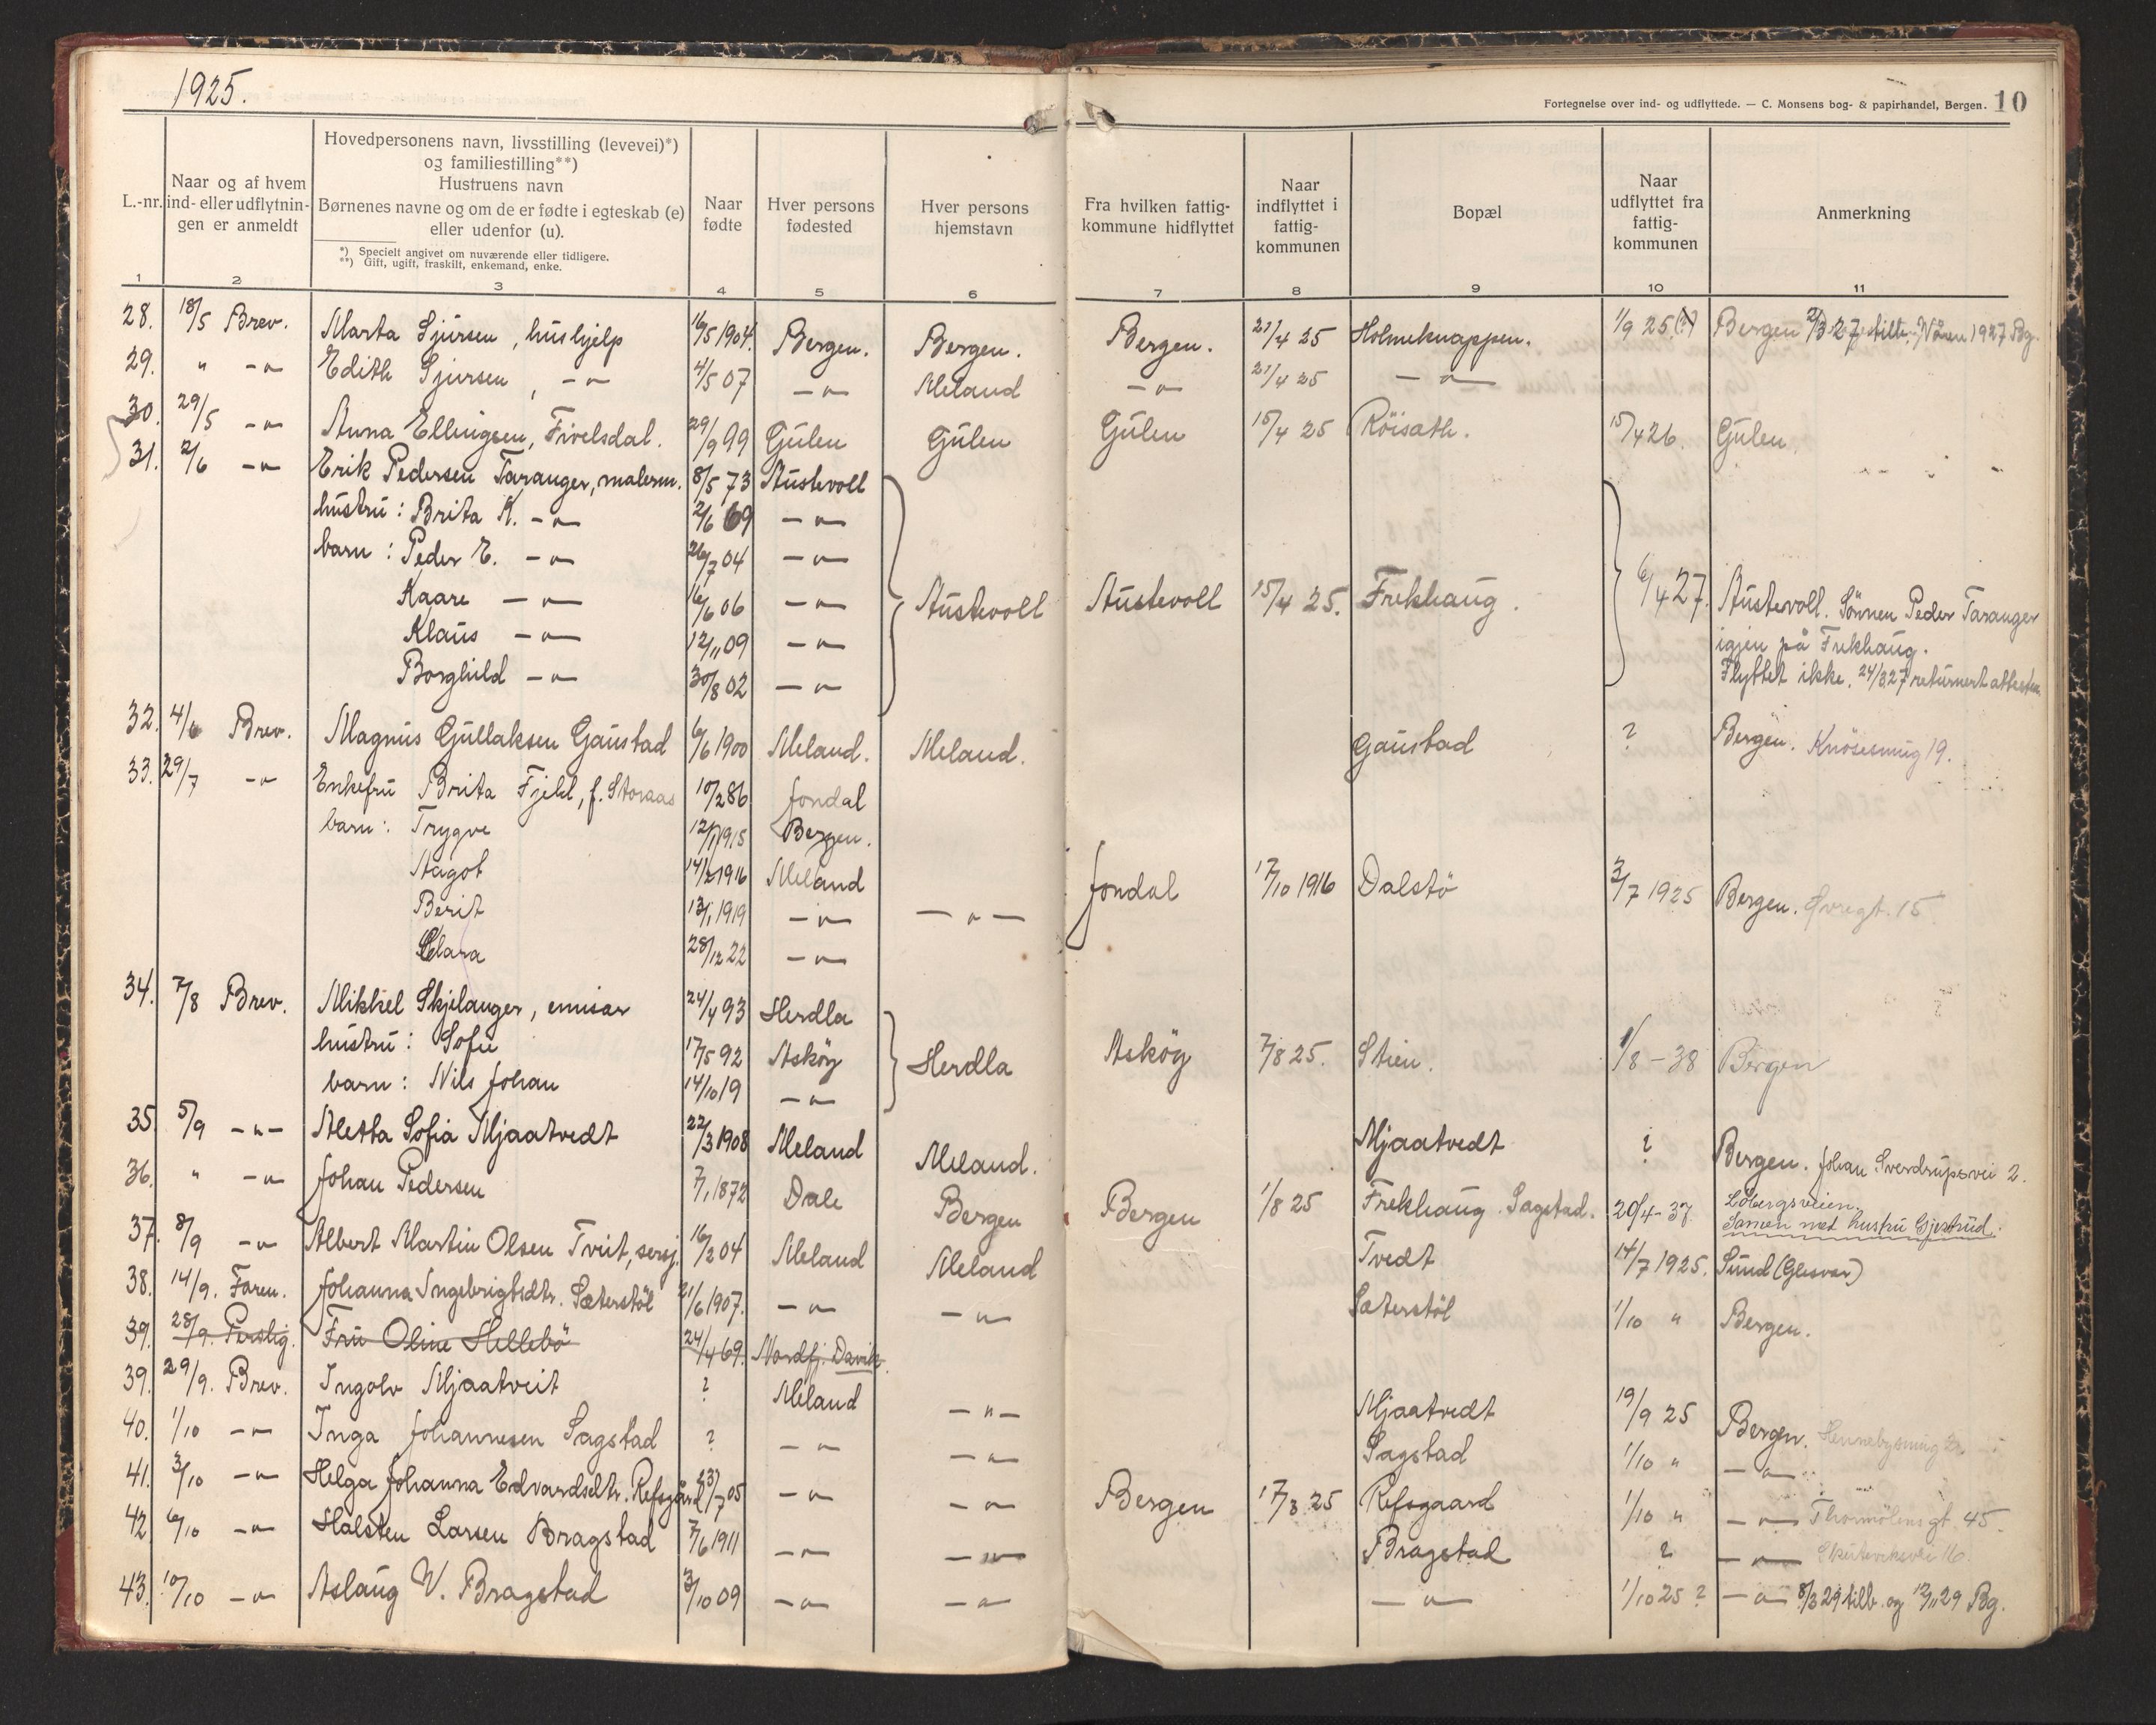 1925.
Fortegnelse over ind- og udflyttede. — C. Monsens bog- & papirhandel, Bergen. 10
L.-nr.
Naar og af hvem
ind- eller udflytnin-
gen er anmeldt
Hovedpersonens navn, livsstilling (levevei)*)
og familiestilling**)
Hustruens navn
Børnenes navne og om de er fødte i egteskab (e)
eller udenfor (u).
*) Specielt angivet om nuværende eller tidligere.
**) Gift, ugift, fraskilt, enkemand, enke.
Naar
fødte
Hver persons
fødested
Hver persons
hjemstavn
Fra hvilken fattig-
kommune hidflyttet
Naar
indflyttet i
fattig-
kommunen
Bopæl
Naar
udflyttet fra
fattig-
kommunen
Anmerkning
1 2 3 4 5 6 7 8 9 10 11
28. 18/5 Brev. Marta Sjursen, hushjelp 16/5 1904. Bergen. Bergen. Bergen. 21/4 25 Holmeknappen. 1/9 25 (?) Bergen 1927 Bg.
29. " -"- Edith Sjursen, -"- 4/5 07 -"- Meland -"- 21/4 25 -"-
30. 29/5 -"- Anna Ellingsen, Fivelsdal. 29/9 99 Gulen Gulen Gulen 15/4 25 Röisath. 15/4 26. Gulen
31. 2/6 -"- Erik Pedersen Taranger, malerm. 8/5 73 Austevoll
hustru: Brita K. -"- 2/6 69 -"-
barn: Peder E. -"- 26/7 04 -"-
Kaare -"- 16/6 06 -"- Austevoll Austevoll 15/4 25. Frekhaug. 6/4 27. Austevoll. Sönnen Peder Taranger
Klaus -"- 12/11 09 -"- igjen på Frekhaug.
Borghild -"- 30/8 02 -"- Flyttet ikke. 24/3 27 returnert attesten
32. 4/6 Brev. Magnus Gullaksen Gaustad 6/6 1900 Meland. Meland. Gaustad ? Bergen. Knösesmug 19.
33. 29/7 -"- Enkefru Brita Fjeld, f. Storaas 10/2 86 Jondal
barn: Trygve 12/1 1915 Bergen.
Aagot 14/2 1916 Meland Jondal 17/10 1916 Dalstö 3/7 1925 Bergen. Øvregt. 15
Berit 13/1 1919 -"- -"-
Clara 28/12 22 -"-
34. 7/8 Brev. Mikkel Skjelanger, emisær 24/4 93 Herdla
hustru: Sofie 17/5 92 Asköy Herdla Asköy 7/8 25. Stien. 1/8 - 38 Bergen
barn: Nils Johan 14/10 19 -"-
35. 5/9 -"- Aletta Sofia Mjaatvedt 22/3 1908 Meland Meland. Mjaatvedt ? Bergen. Johan Sverdrupsvei 2.
36. " -"- Johan Pedersen 7/1 1872 Dale Bergen Bergen 1/8 25 Frekhaug Sagstad. 20/4-37. Löbergsveien.
Sammen med hustru Gjertrud.
37. 8/9 -"- Albert Martin Olsen Tveit, sersj. 16/2 04 Meland Meland Tvedt 14/7 1925. Sund (Glesvær)
38. 14/9. Faren. Johanna Ingebrigtsdtr. Sæterstöl 21/6 1907. -"- -"- Sæterstöl 1/10 " Bergen.
39. 28/9. Perslig. Fru Oline Hellebö 24/4 69. Nordfj. Davik.
39. 29/9. Brev. Ingolv Mjaatveit ? Meland -"- Mjaatvedt 19/9 25 Bergen.
40. 1/10 -"- Inga Johannesen Sagstad ? -"- -"- Sagstad 1/10 " -"-
41. 3/10 -"- Helga Johanna Edvardsdtr. Refsgård 23/7 05 -"- -"- Bergen 17/3 25 Refsgaard 1/10 " -"- Thormölensgt. 45.
42. 6/10 -"- Halsten Larsen Bragstad 7/6 1911 -"- -"- Bragstad ? -"- Skuteviksvei 16.
43. 10/10 -"- Aslaug V. Bragstad 3/10 09 -"- -"- -"- 1/10 25 ? -"- 8/3 29 tilb. og 12/11 29 Bg.